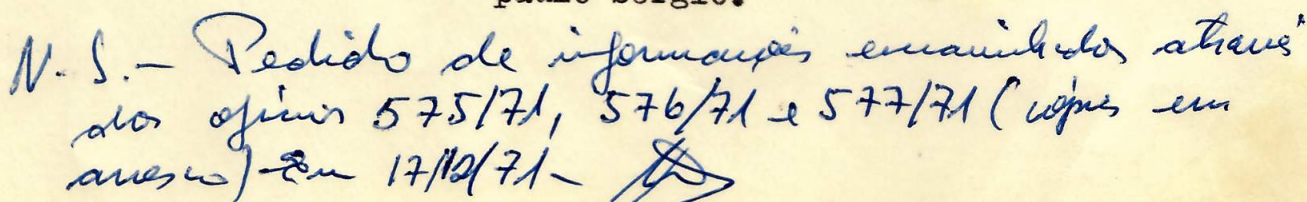 paulo sérgio.
N. S. - Pedido de informações encaminhados através
dos ofícios 575/71, 576/71 e 577/71 (cópias em
anexo) - Em 17/12/71 -